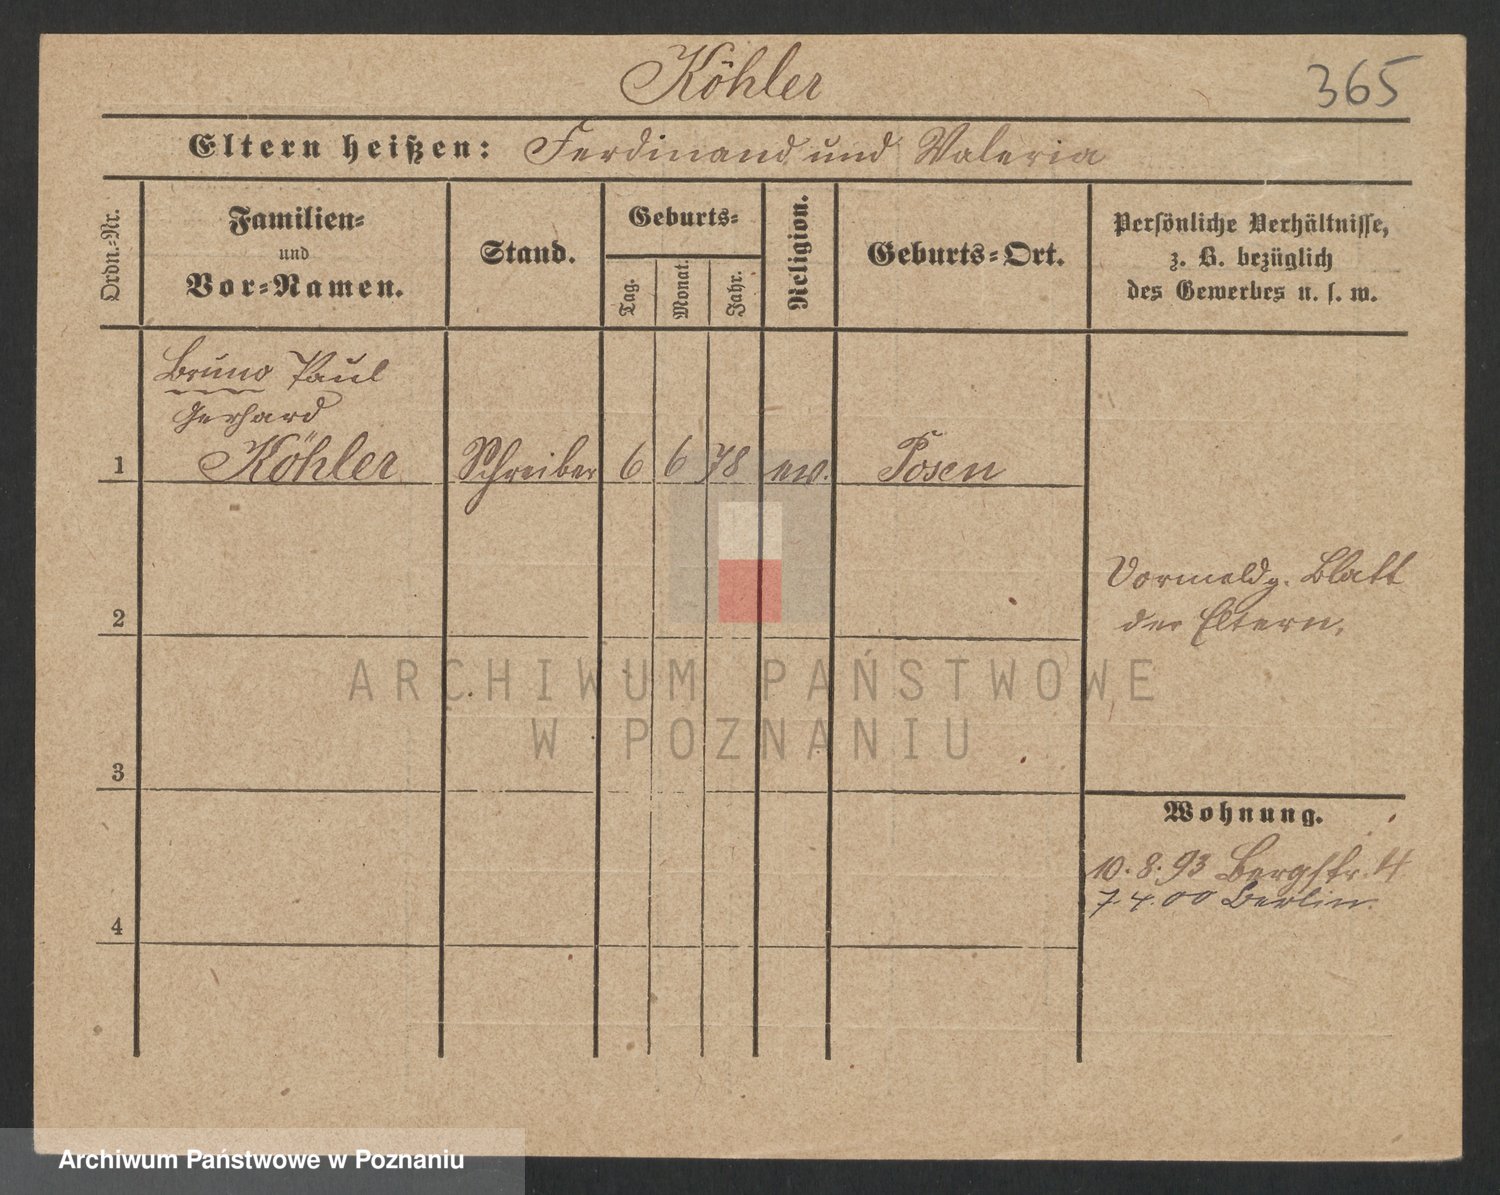 Köhler
365
Eltern heißen: Ferdinand und Valeria
Ordn.-Nr.
Familien-
und
Vor-Namen.
Stand.
Geburts-
Tag.
Monat.
Jahr.
Religion.
Geburts-Ort.
Persönliche Verhältnisse,
z. B. bezüglich
des Gewerbes u. s. w.
Bruno Paul
Gerhard
1 Köhler Schreiber 6 6 78 ev. Posen
Vormeldg. Blatt
der Eltern.
2
ARCHIWUM PAŃSTWOWE
W POZNANIU
3
Wohnung.
10.8.93 Bergstr. 4
7.4.00 Berlin.
4
Archiwum Państwowe w Poznaniu